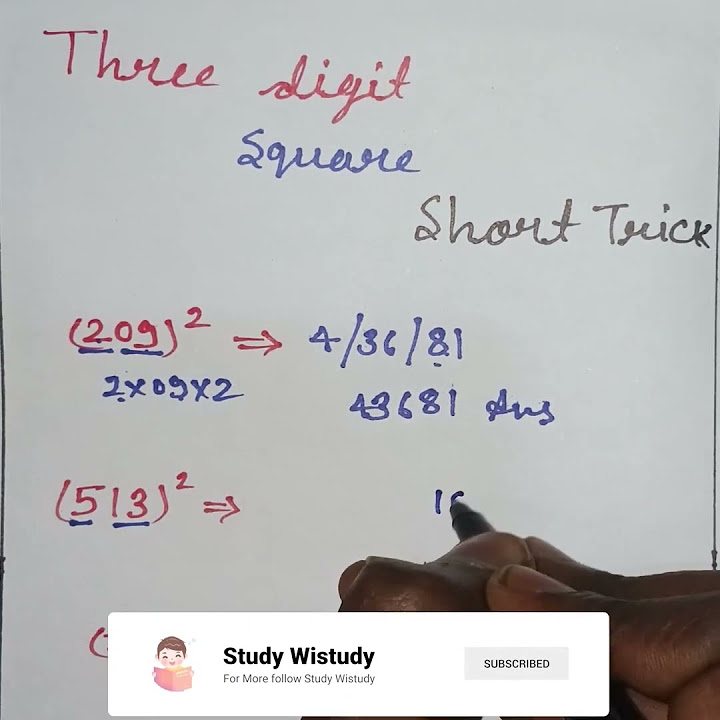 Three digit
Square
Short Trick
(209)² ⇒ 4/36/81
2×09×2
43681 Ans
(513)² ⇒
(
Study Wistudy
For More follow Study Wistudy
SUBSCRIBED